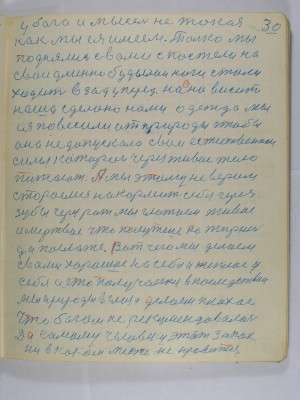 30
у бога и мысли не такая
как мы ея имеем. Только мы
поднялись с вами с постели на
свои длинно будылыи ноги стали
ходить взад уперед на нас висит
наша сделано нами одежда мы
ея повесили от природы чтобы
она не допускала свои естественныи
силы которыи через живое тело
питают. А мы этому не верим
стораемся накормить себя через
зубы через рот мы глотаем живое
и мертвое что получше по жирней
да послаже. Вот чего мы делаем
с вами хорошее на себя и теплое у
себя а что получаем в последствии
меж природы в
делаем плохое
что богом не рекомендовалося
Да самому человеку этот запах
ни в каком месте не нравится